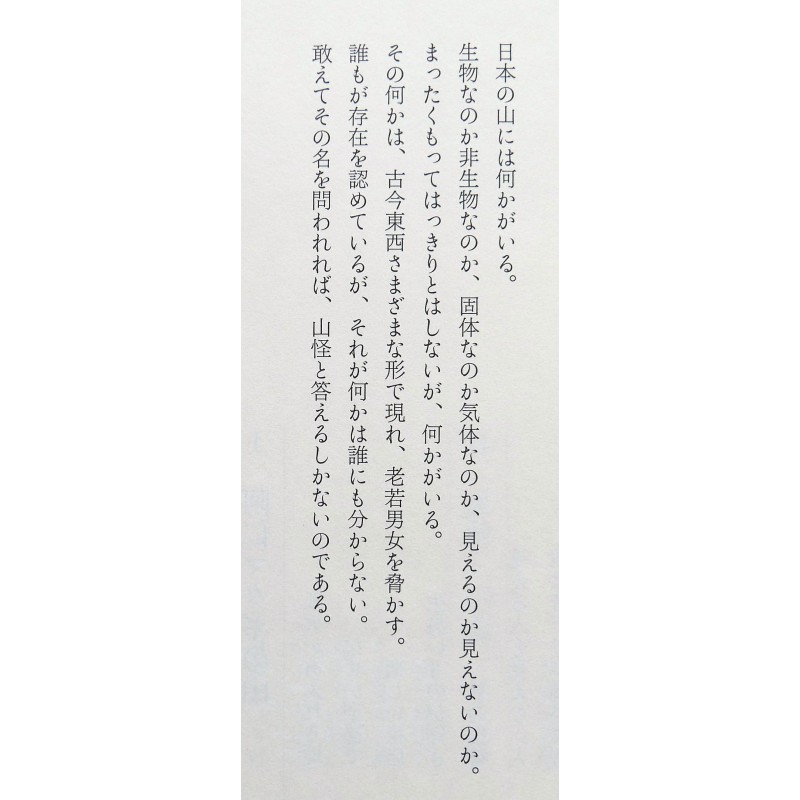 日本の山には何かがいる。
生物なのか非生物なのか、固体なのか気体なのか、見えるのか見えないのか。
まったくもってはっきりとはしないが、何かがいる。
その何かは、古今東西さまざまな形で現れ、老若男女を脅かす。
誰もが存在を認めているが、それが何かは誰にも分からない。
敢えてその名を問われれば、山怪と答えるしかないのである。